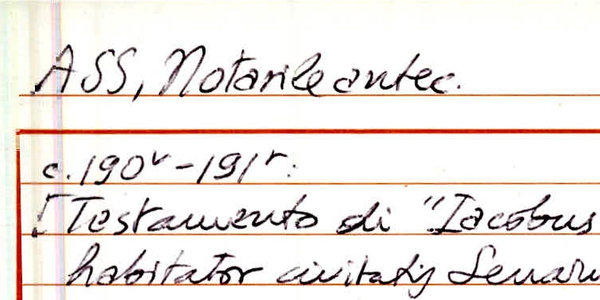 ASS, Notarile antec.
c. 190v - 191r:
[Testamento di "Iacobus
habitator civitatis Senarum